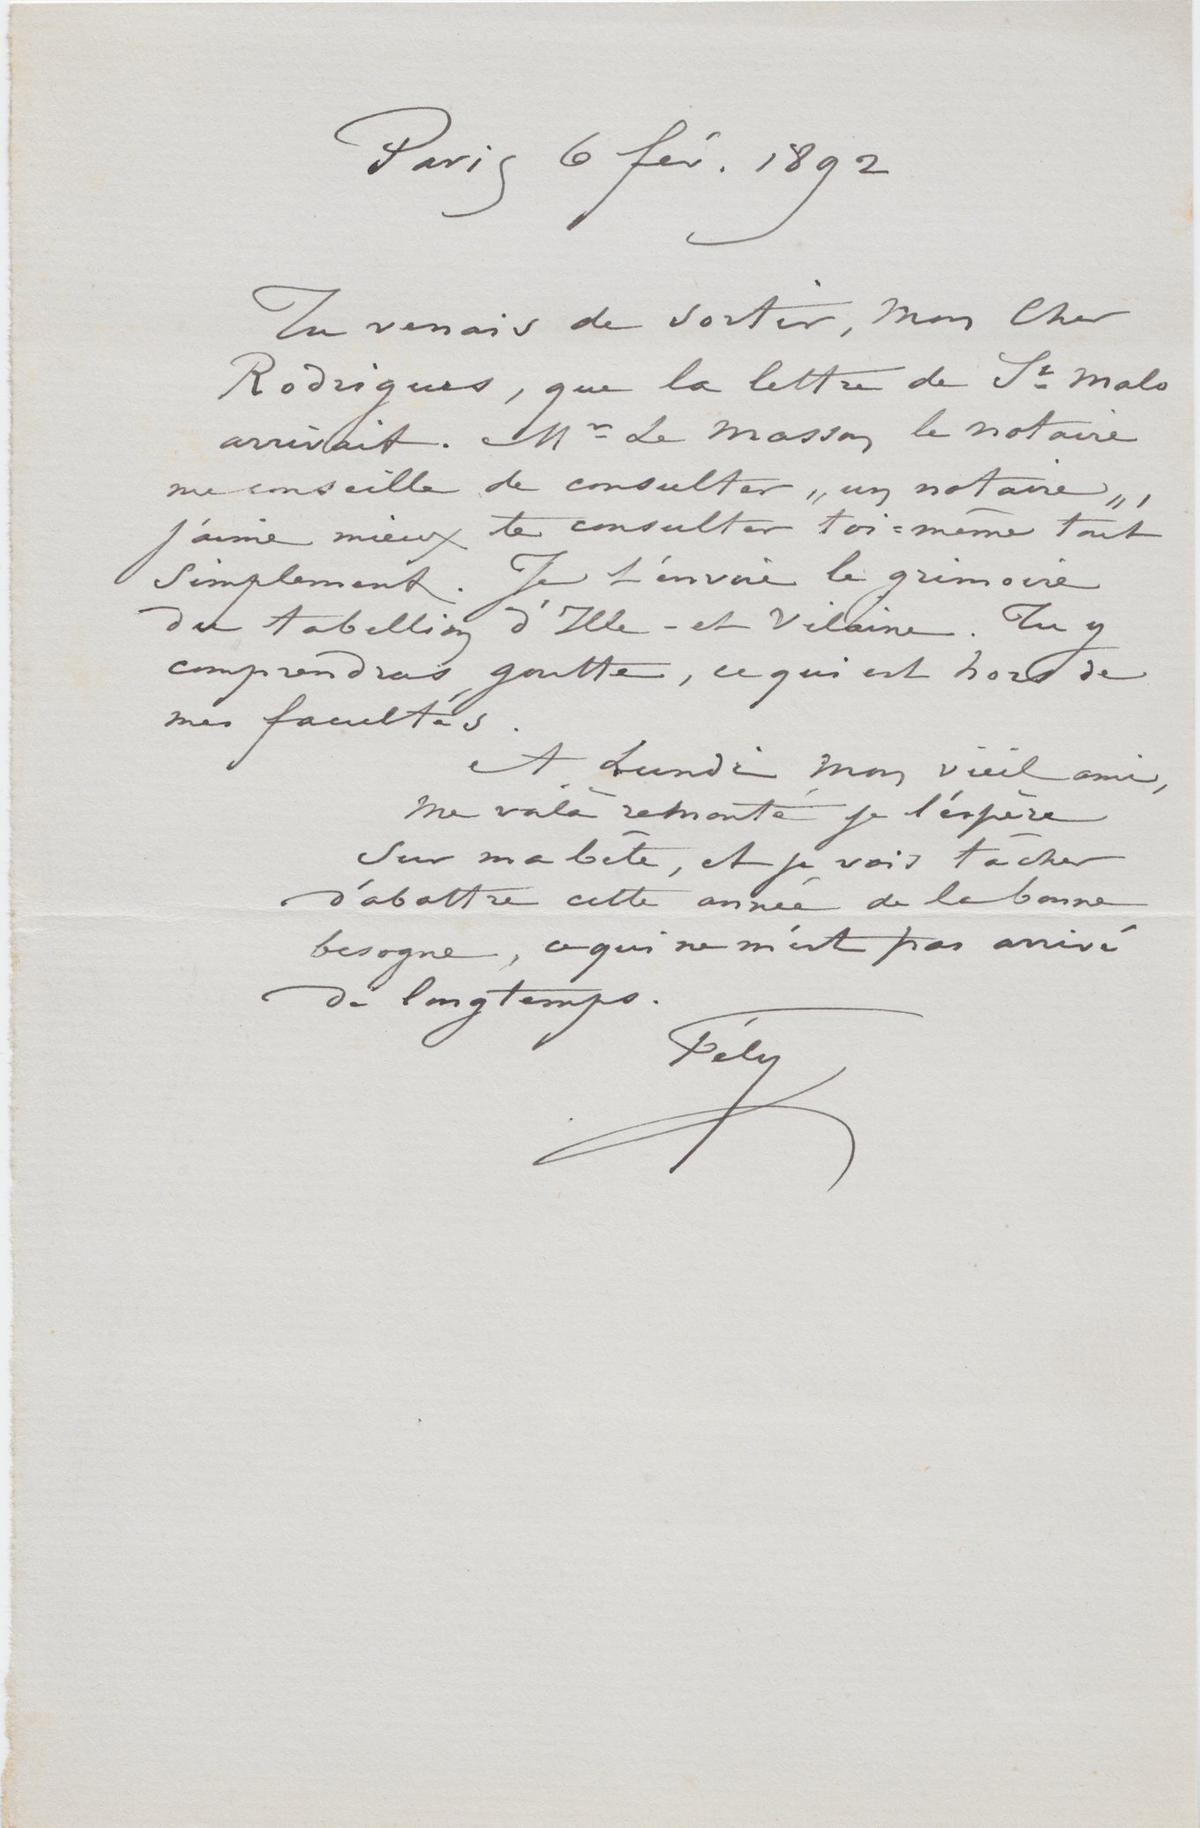 Paris 6 fév. 1892
Tu venais de sortir, mon Cher
Rodrigues, que la lettre de St Malo
arrivait. Mr Le Masson le notaire
me conseille de consulter „un notaire„,
j'aime mieux te consulter toi=même tout
simplement. Je t'envoie le grimoire
du tabellion d'Ille-et Vilaine. Tu y
comprendras goutte, ce qui est hors de
mes facultés.
A Lundi mon vieil ami,
me voilà remonté je l'éspère
sur ma bête, et je vais tâcher
d'abattre cette année de la bonne
besogne, ce qui ne m'est pas arrivé
de longtemps.
Fély